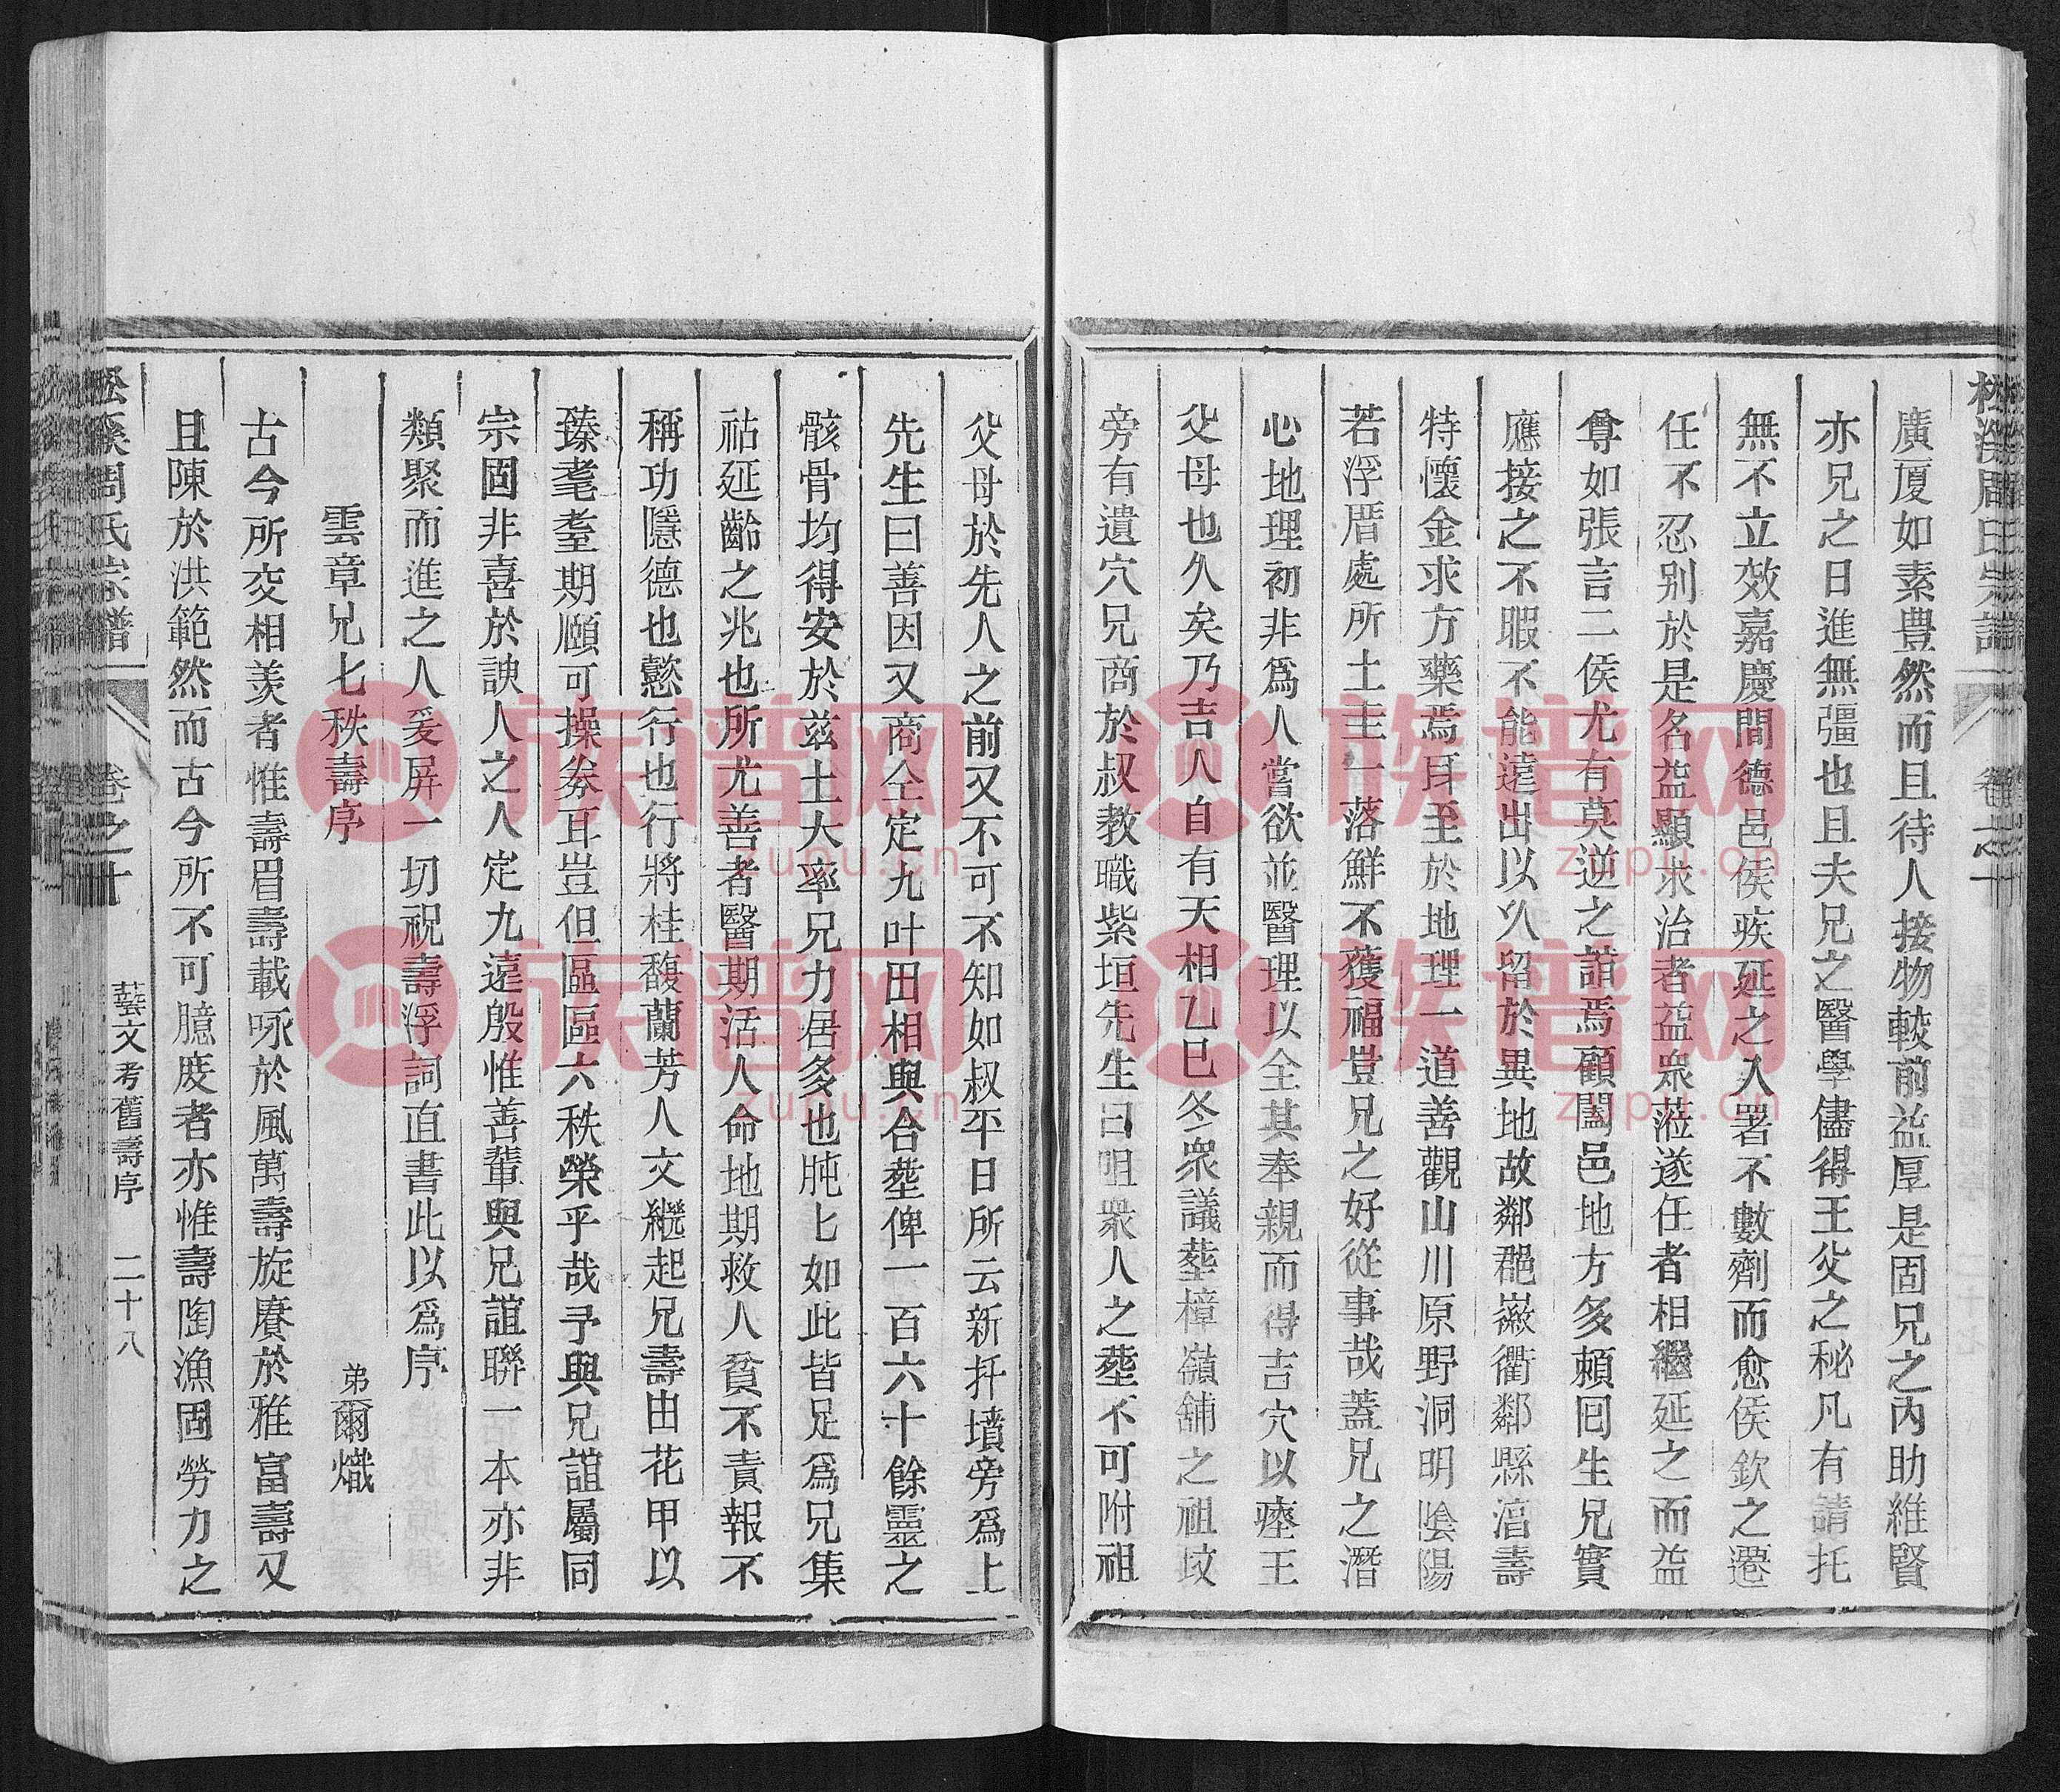 松溪周氏宗譜 卷之十
廣厦如素豊然而且待人接物較前益厚是固兄之內助維賢
亦兄之日進無彊也且夫兄之醫學儘得王父之秘凡有請托
無不立效嘉慶間德邑侯疾延之入署不數劑而愈侯欽之遷
任不忍别於是名益顯求治者益衆蒞遂任者相繼延之而益
尊如張言二侯尤有莫逆之誼焉顧闔邑地方多頼囘生兄實
應接之不暇不能遠出以久留於異地故鄰郡嚴衢鄰縣淯壽
特懷金求方藥焉耳至於地理一道善觀山川原野洞明陰陽
若浮厝處所土主一落鮮不獲福豈兄之好從事哉蓋兄之潛
心地理初非爲人嘗欲並醫理以全其奉親而得吉穴以瘞王
父母也久矣乃吉人自有天相乙巳冬衆議塟樟嶺舖之祖坟
旁有遺穴兄商於叔教職紫垣先生曰咀衆人之塟不可附祖
父母於先人之前又不可不知如叔平日所云新扦墳旁爲上
先生曰善因又商仝定九叶田相與合塟俾一百六十餘靈之
骸骨均得安於兹土大率兄力居多也肫匕如此皆足爲兄集
祜延齡之兆也所尤善者醫期活人命地期救人貧不責報不
稱功隱德也懿行也行將桂馥蘭芳人文繼起兄壽由花甲以
臻耄耋期頤可操劵耳豈但區區六秩榮乎哉予與兄誼屬同
宗固非喜於諛人之人定九遠殷惟善輩與兄誼聯一本亦非
類聚而進之人爰屏一切祝壽浮詞直書此以爲序
雲章兄七秩壽序 弟爾熾
古今所交相羡者惟壽眉壽載咏於風萬壽旋賡於雅富壽又
且陳於洪範然而古今所不可臆度者亦惟壽陶漁固勞力之
松溪周氏宗譜 卷之十 藝文考舊壽序 二十八
族谱网
zupu.cn
族谱网
zupu.cn
族谱网
zupu.cn
族谱网
zupu.cn